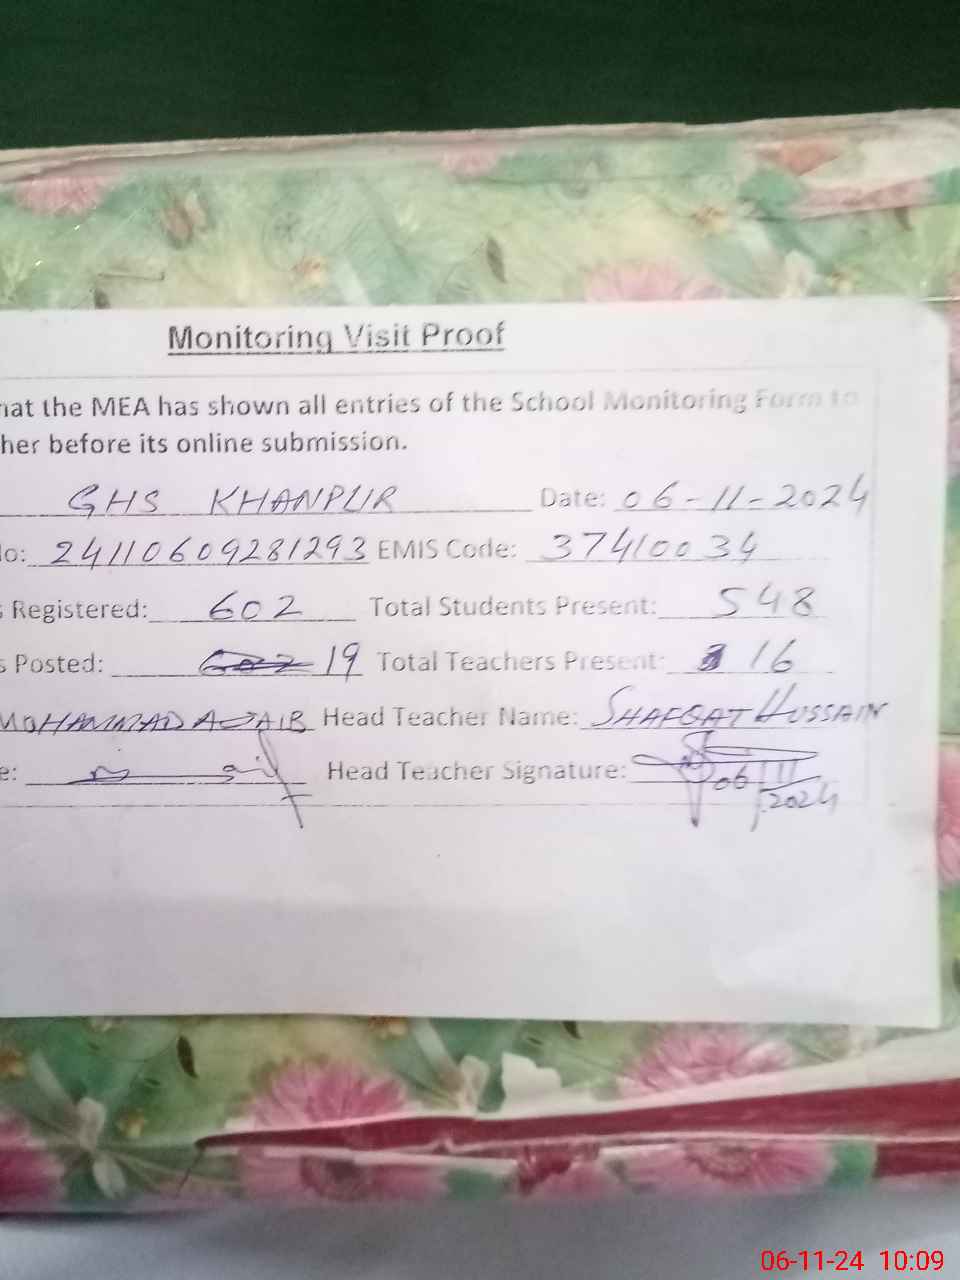 Monitoring Visit Proof
hat the MEA has shown all entries of the School Monitoring Form to
her before its online submission.
GHS KHANPUR Date: 06-11-2024
No: 24110609281293 EMIS Code: 37410034
s Registered: 602 Total Students Present: 548
s Posted: 19 Total Teachers Present: 16
MOHAMMAD Head Teacher Name: SHAFQAT HUSSAIN
e: Head Teacher Signature: 06/11/2024
06-11-24 10:09